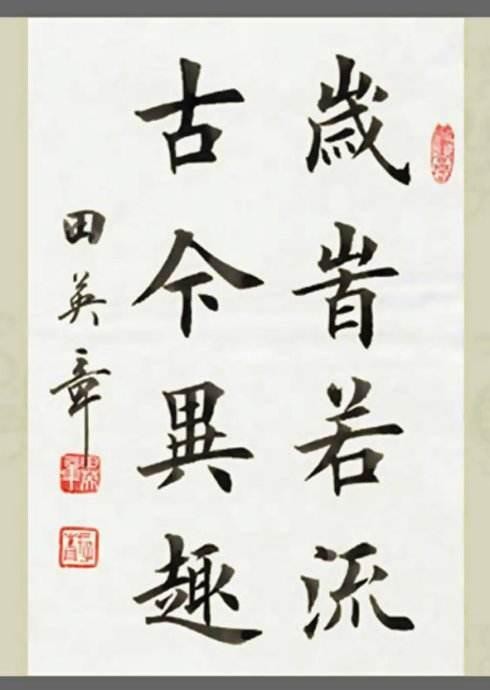 嵗旹若流
古今異趣
田英章